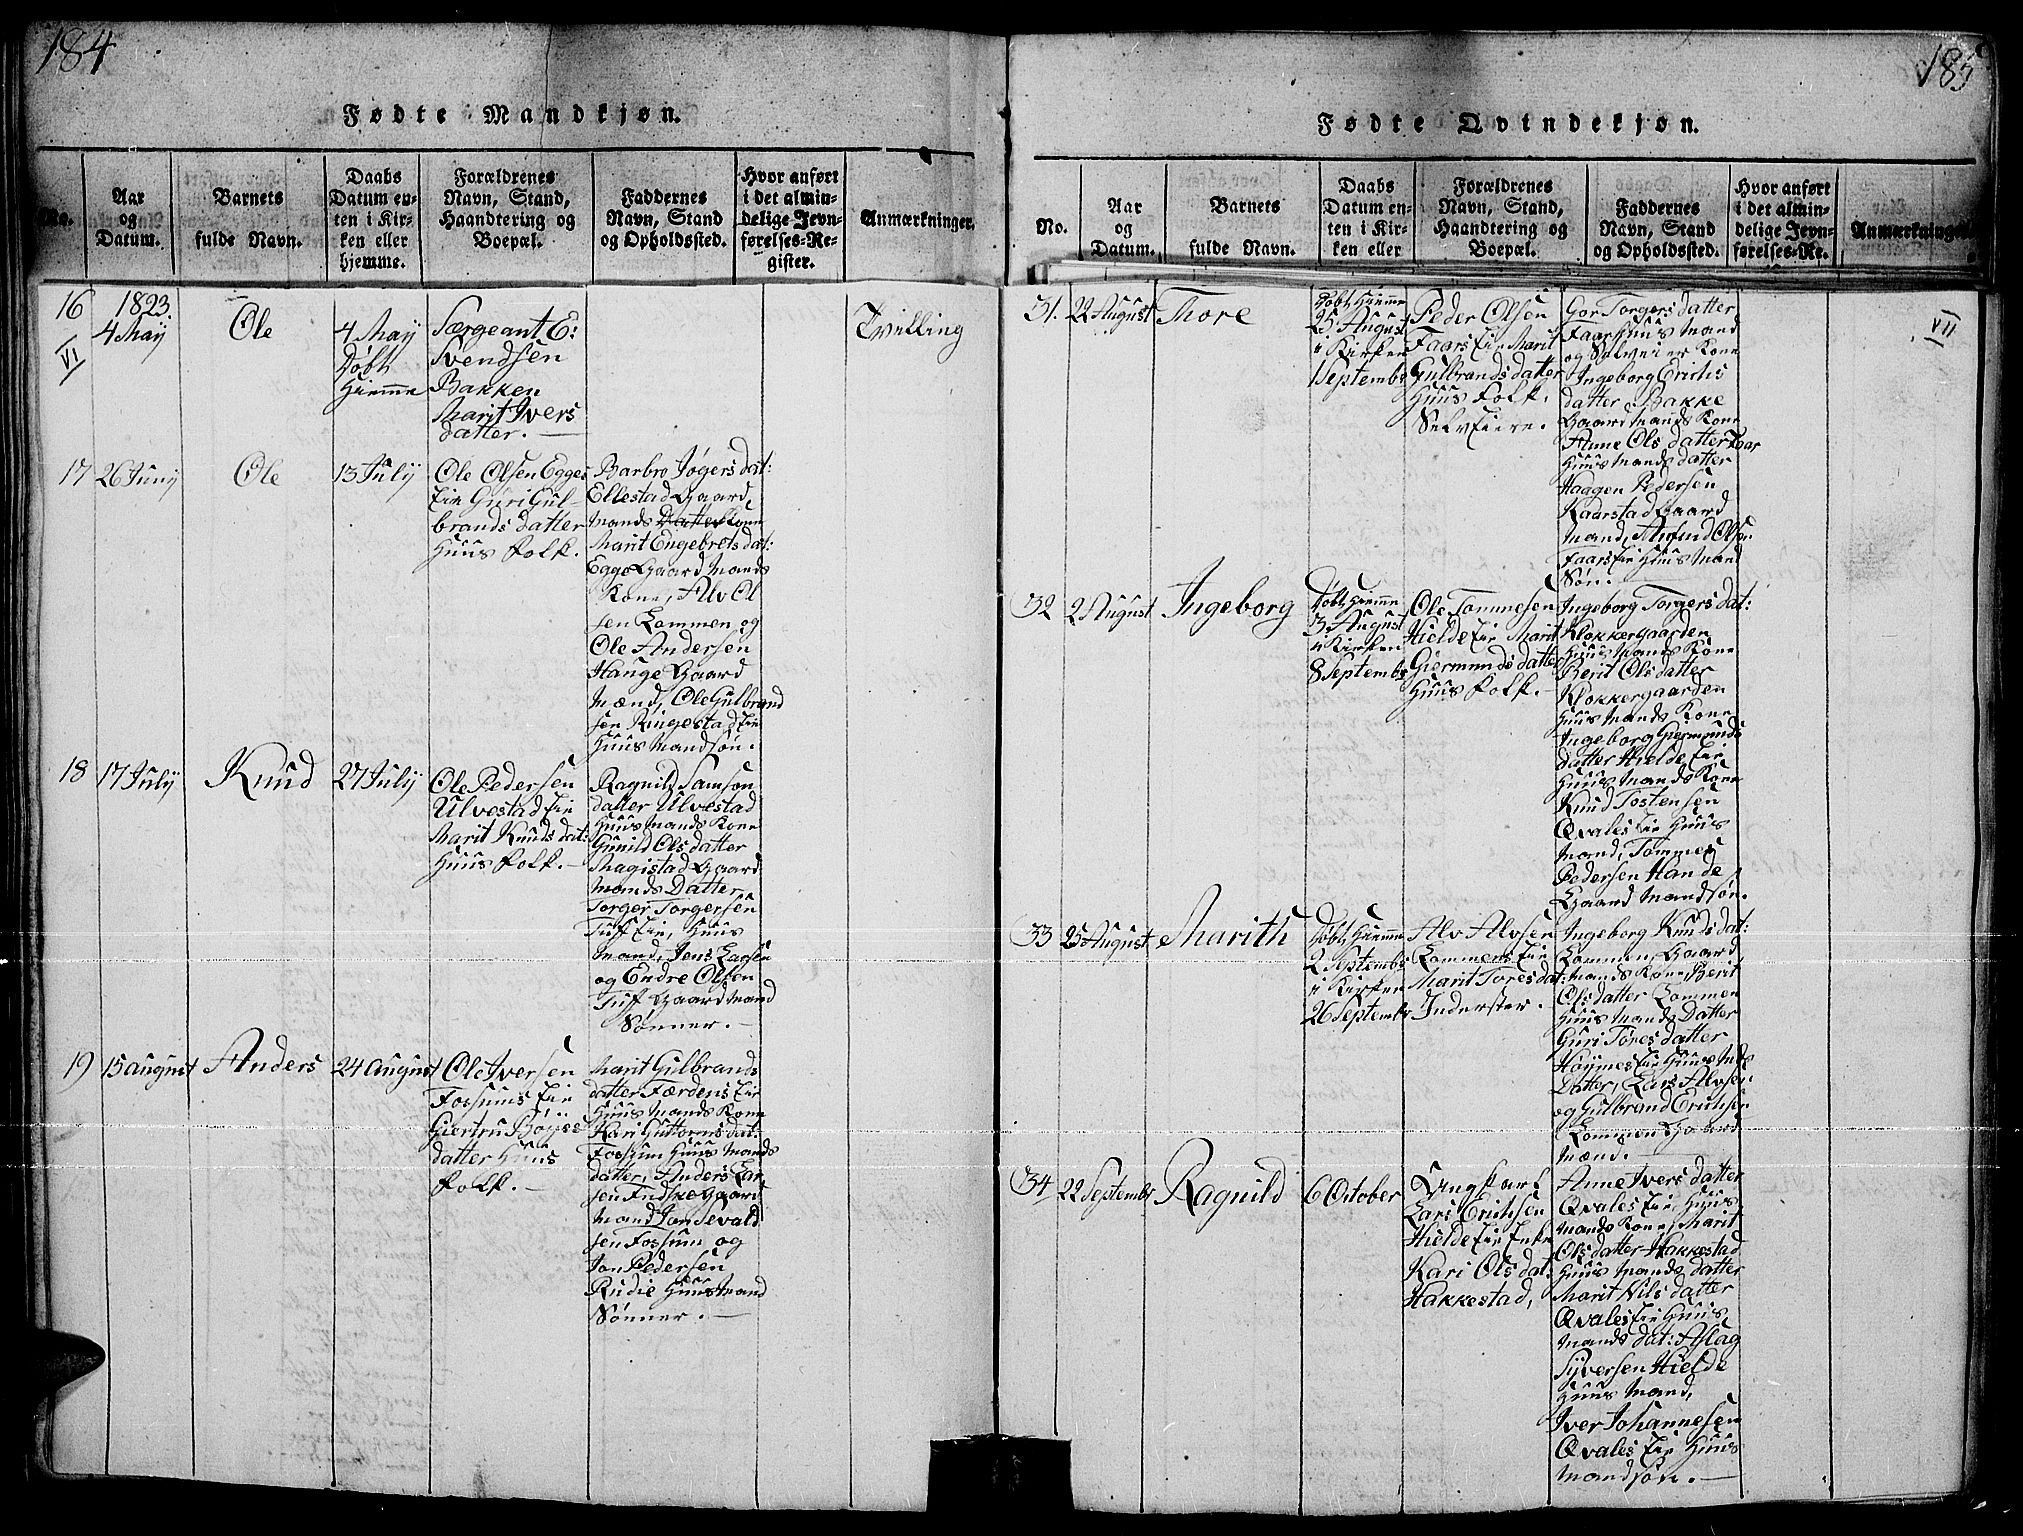 184
Fødte Mandkjøn.
No.
Aar
og
Datum.
Barnets
fulde Navn.
Daabs
Datum en-
ten i Kir-
ken eller
hjemme.
Forældrenes
Navn, Stand,
Haandtering og
Boepæl.
Faddernes
Navn, Stand
og Opholdssted.
Hvor anført
i det almin-
delige Jevn-
førelses-Re-
gister.
Anmærkninger.
16
VI
1823.
4 May
Ole
4 May
Døbt
Hiemme
Særgeant E:
Svendsen
Bakken
Marit Ivers
datter. —
Tvilling
17
26 Juny
Ole
13 July
Ole Olsen Egges
Eie Guri Gul
brands datter
Huus Folk.
Barbro Jøgers dat:
Ellestad Gaard
Mands Datter Kone
Marit Engebrets dat:
Egge Gaard Mands
Kone, Alv Ol
sen Lommen og
Ole Andersen
Hange Gaard
Mænd, Ole Gulbrand
sen Ringestad Eie
Huus Mandsøn.
18
17 July
Knud
27 July
Ole Pedersen
Ulvestad Eie
Marit Knuds dat:
Huus Folk. —
Ragnild Samson
datter Ulvestad
Huus Mands Kone
Gunild Ols datter
Magistad Gaard
Mands Datter,
Torger Torgersen
Tuff Eie, Huus
Mand, Jens Larsen
og Endre Olsen
Tuff Gaard Mand
Sønner. —
19
15 August
Anders
24 August
Ole Iversen
Fossums Eie
Giertru Böyse
datter Huus
Folk. —
Marit Gulbrands
datter Færdens Eie
Huus Mands Kone
Kari Guttorms dat:
Fossum Huus Mands
datter, Anders Lar
sen Fndske Gaard
Mand Jon Sevald
sen Fossum og
Jon Pedersen
Rudie Huus Mand
Sønner. —
185
Fødte Qvindekjøn.
No.
Aar
og
Datum.
Barnets
fulde Navn.
Daabs
Datum en-
ten i Kir-
ken eller
Forældrenes
Navn, Stand,
Haandtering og
Boepæl.
Faddernes
Navn, Stand
og Opholdssted.
Hvor anført
i det almin-
delige Jevn-
førelses-Re-
Anmærkninger.
VII
31.
22 August
Thore
Døbt Hiemme
25 August
i Kirken
1 Septembr
Peder Olsen
Faars Eie Marit
Gulbrands datter
Huus Folk.
Selv Eiere.
Gor Torgers datter
Faar Huus Mand
og Selveier Kone
Ingeborg Erichs
datter Bakke
Gaard Mands Kone
Anne Ols datter Faar
Huus Mands datter
Haagen Pedersen
Kaarstad Gaard
Mand, Amund Olsen
Faars Eie Huus Mand
Søn. —
32
2 August
Ingeborg
Døbt Hiemme
3 August
i Kirken
8 Septembr
Ole Tommesen
Hielde Eie Marit
Giermunds datter
Huus Folk. —
Ingeborg Torgers dat:
Klokkergaarden
Huus Mands Kone
Berit Ols datter
Klokkergaarden
Huus Mands Kone
Ingeborg Giermunds
datter Hielde Eie
Huus Mands Kone
Knud Tostensen
Qvales Eie Huus
Mand, Tommes
Pedersen Hande
Gaard Mandsøn.
33
25 August
Marith
Døbt Hiemme
2 Septembr
i Kirken
26 Septembr
Alv Alvsen
Lommens Eie
Marit Tores dat:
Inderster.
Ingeborg Knuds dat:
Lommen, Gaard
Mands Kone, Berit
Ols datter Lommen
Huus Mands Datter
Guri Töres datter
Höymes Eie Huus Mds
Datter, Lars Alvsen
og Gulbrand Erichsen
Lommen Gaard
Mænd. —
34
22 Septembr
Ragnild
6 October
Ungkarl
Lars Erichsen
Hielde Eie Enke
Kari Ols dat:
Hakkestad,
Anne Ivers datter
Qvales Eie Huus
Mands Kone, Marit
Ols datter Hakkestad
Huus Mands datter
Marit Nils datter
Qvales Eie Huus
Mands dat: Aslag
Syversen Hielde
Huus Mand,
Iver Johannesen
Qvales Eie Huus
Mandsøn. —